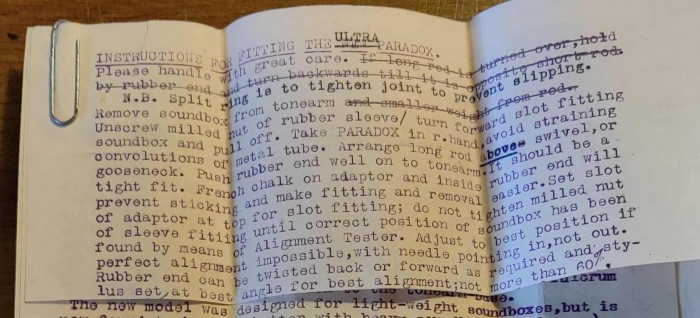 ULTRA
INSTRUCTIONS FOR FITTING THE NEW PARADOX.
Please handle with great care. If long rod is turned over,hold
by rubber end and turn backwards till it is opposite short rod.
N.B. Split ring is to tighten joint to prevent slipping.
Remove soundbox from tonearm and smaller weight from rod.
Unscrew milled nut of rubber sleeve/ turn forward slot fitting
soundbox and pull off. Take PARADOX in r.hand,avoid straining
convolutions of metal tube. Arrange long rod above swivel,or
gooseneck. Push rubber end well on to tonearm.It should be a
tight fit. French chalk on adaptor and inside rubber end will
prevent sticking and make fitting and removal easier.Set slot
of adaptor at top for slot fitting; do not tighten milled nut
of sleeve fitting until correct position of soundbox has been
found by means of Alignment Tester. Adjust to best position if
perfect alignment impossible,with needle pointing in,not out.
Rubber end can be twisted back or forward as required and sty-
lus set,at best angle for best alignment;not more than 60°.
fulcrum
to the tonearm-base.
The new model was designed for light-weight soundboxes,but is